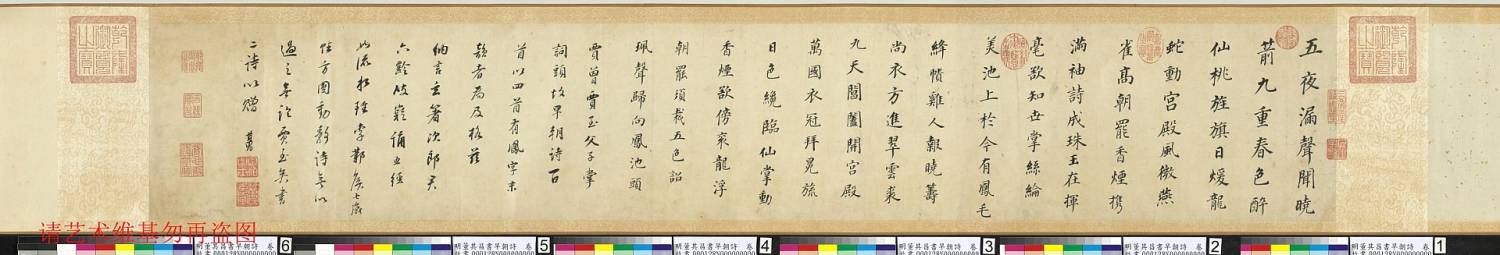 五夜漏聲聞曉
箭九重春色醉
仙桃旌旗日煖龍
蛇動宮殿風微燕
雀高朝罷香煙攜
滿袖詩成珠玉在揮
毫欲知世掌絲綸
美池上於今有鳳毛
絳幘雞人報曉籌
尚衣方進翠雲裘
九天閶闔開宮殿
萬國衣冠拜冕旒
日色纔臨仙掌動
香煙欲傍袞龍浮
朝罷須裁五色詔
珮聲歸向鳳池頭
賈曾賈至父子掌
詞頭故早朝詩百
首以四首有鳳字末
韻者為及格茲
納言玄箸次郎君
六齡岐嶷誦五經
如流李鄴侯七歲
方圓動靜詩無以
過之書
二詩以贈 其昌
请艺术维基勿再盗图
明董其昌書早朝詩 卷
1
2
3
4
5
6